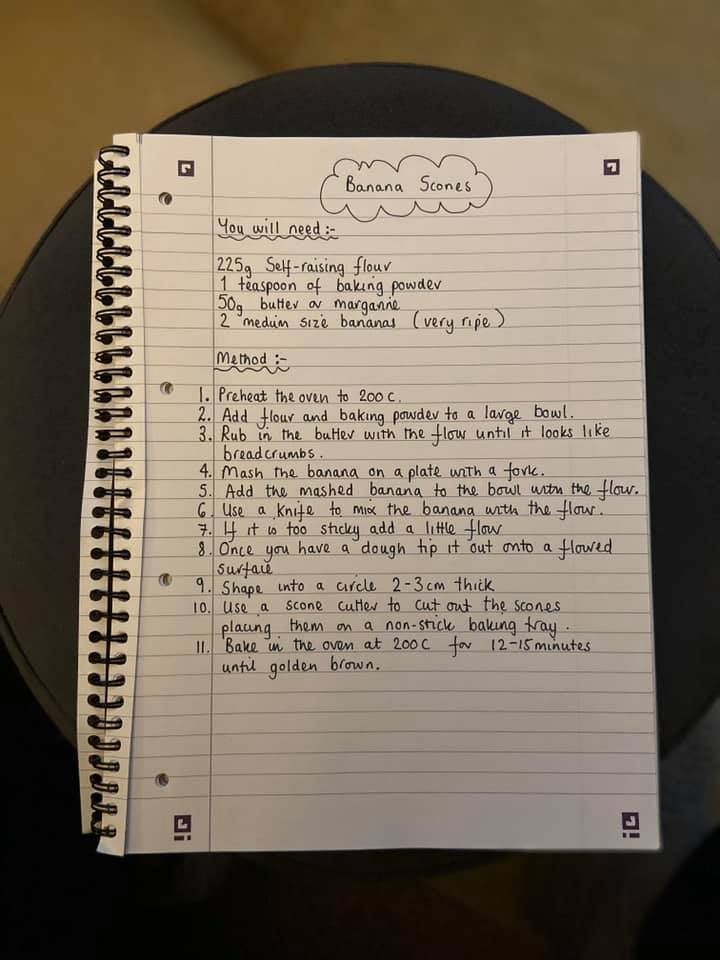 Banana Scones
You will need :-
225g Self-raising flour
1 teaspoon of baking powder
50g butter or margarine
2 medium size bananas (very ripe)
Method :-
1. Preheat the oven to 200 C.
2. Add flour and baking powder to a large bowl.
3. Rub in the butter with the flow until it looks like
breadcrumbs.
4. Mash the banana on a plate with a fork.
5. Add the mashed banana to the bowl with the flow.
6. Use a knife to mix the banana with the flow.
7. If it is too sticky add a little flow
8. Once you have a dough tip it out onto a flowed
surface
9. Shape into a circle 2-3cm thick
10. Use a scone cutter to cut out the scones
placing them on a non-stick baking tray.
11. Bake in the oven at 200C for 12-15minutes
until golden brown.